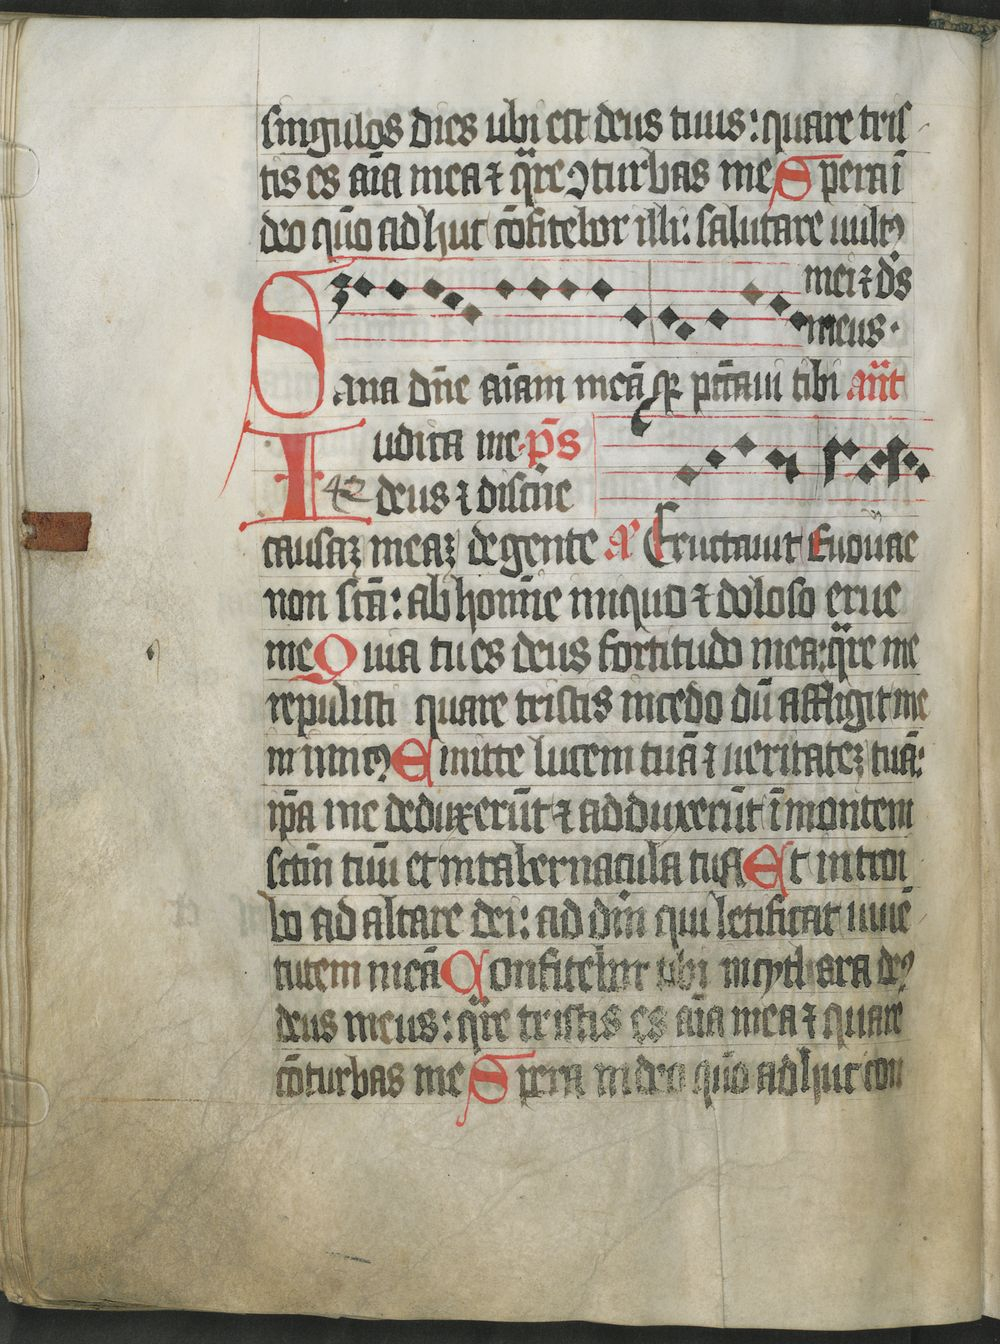 singulos dies ubi est deus tuus: quare tris
tis es aīa mea ⁊ q̄re ꝯturbas me Spera ī
deo qm̄o adhuc cōfitebor illi: salutare uultꝯ
mei ⁊ ds̄
meus.
Sana dn̄e aīam meā q̄ peccaui tibi an̄t
Iudica me ps̄
42 deus ⁊ discn̄e
causaꝫ meaꝫ de gente Eructauit Euouae
non sc̄a: ab homīe iniquo ⁊ doloso erue
me Quia tu es deus fortitudo mea: q̄re me
repulisti quare tristis incedo dū affligit me
inimicꝯ Emitte lucem tuā ⁊ ueritateꝫ tuā:
ip̄a me deduxerūt ⁊ adduxerūt ī montem
sctm̄ tuū et in tabernacula tua Et introi
bo ad altare dei: ad dm̄ qui letificat iuuē
tutem meā Confitebor tibi in cythara deꝯ
deus meus: q̄re tristis es aīa mea ⁊ quare
cōturbas me Spera in deo qm̄o adhuc con